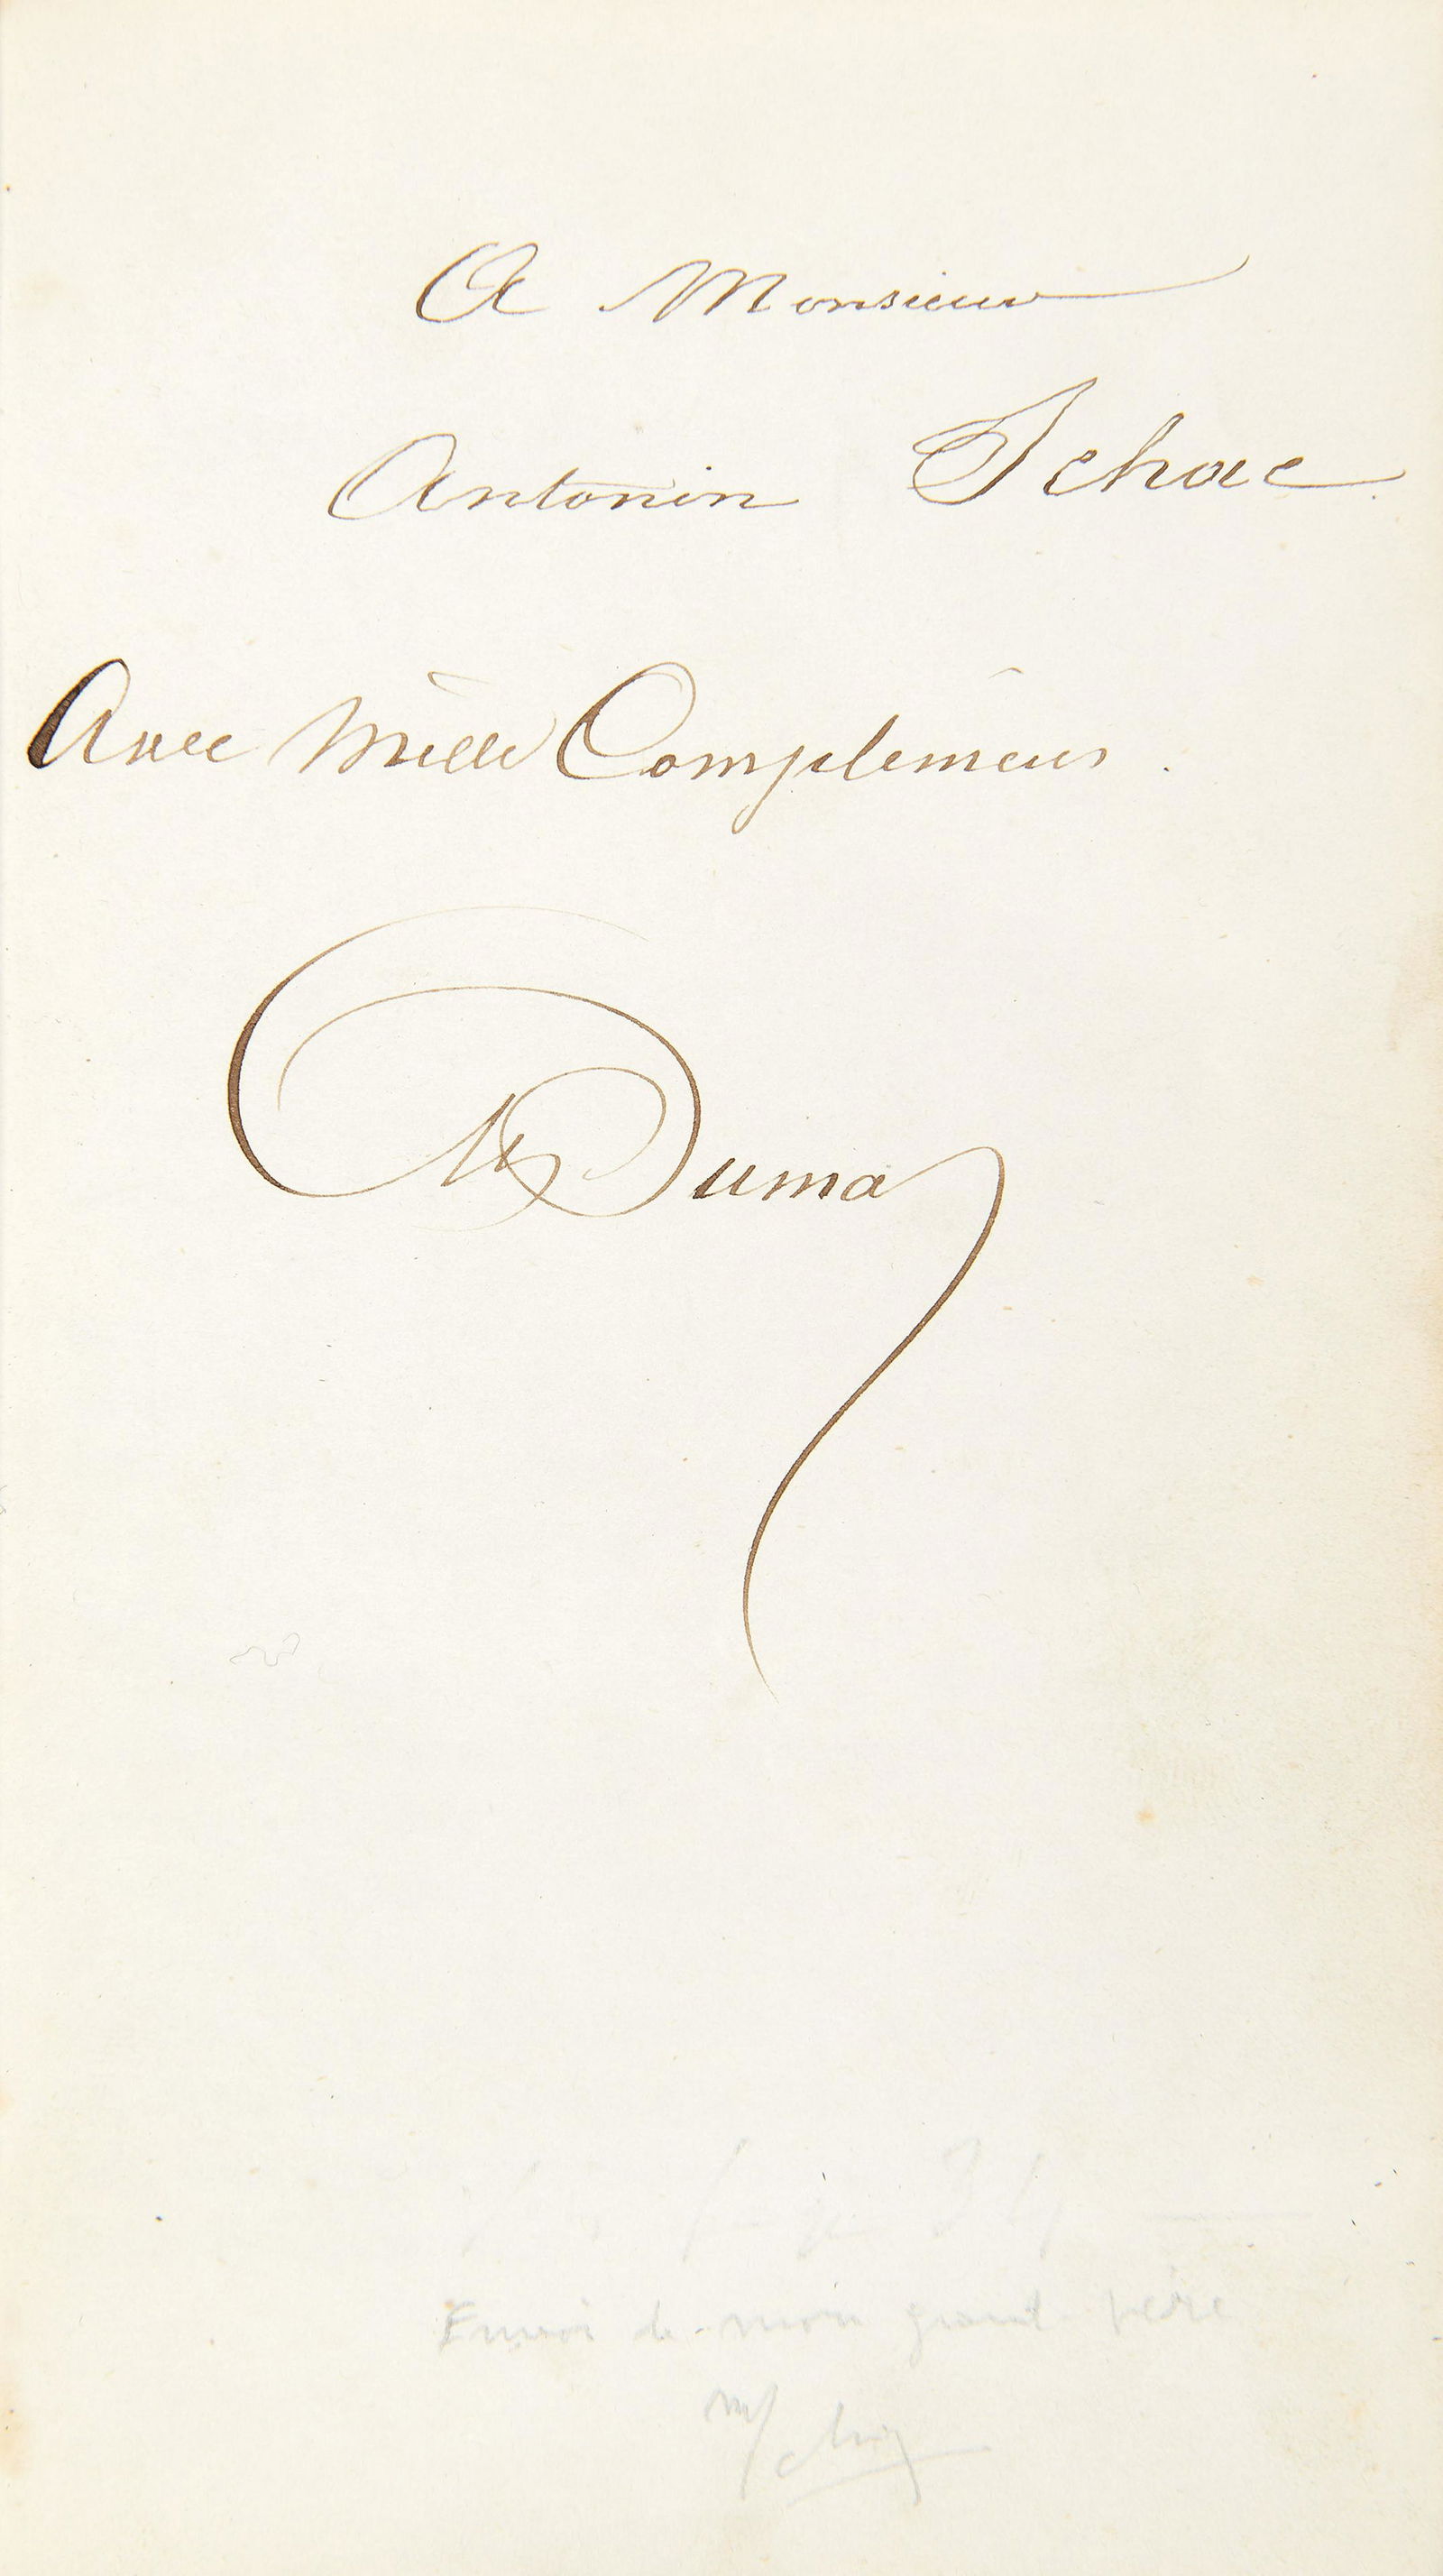 A Monsieur
Antonin Ichac
Avec Mille Complemens.
Alex Dumas
Envoi de mon grand-père